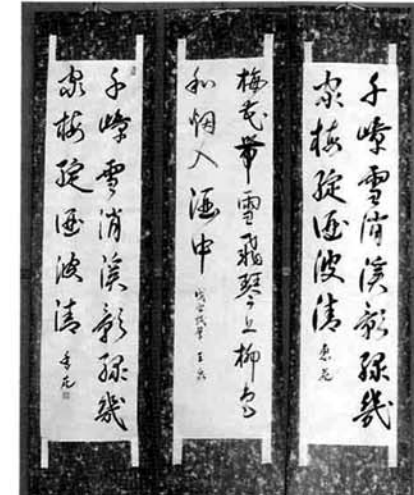 千嶂雪消溪影綠幾
家梅綻海波清
梅花帶雪飛琴上柳色
和烟入酒中
千嶂雪消溪影綠幾
家梅綻海波清